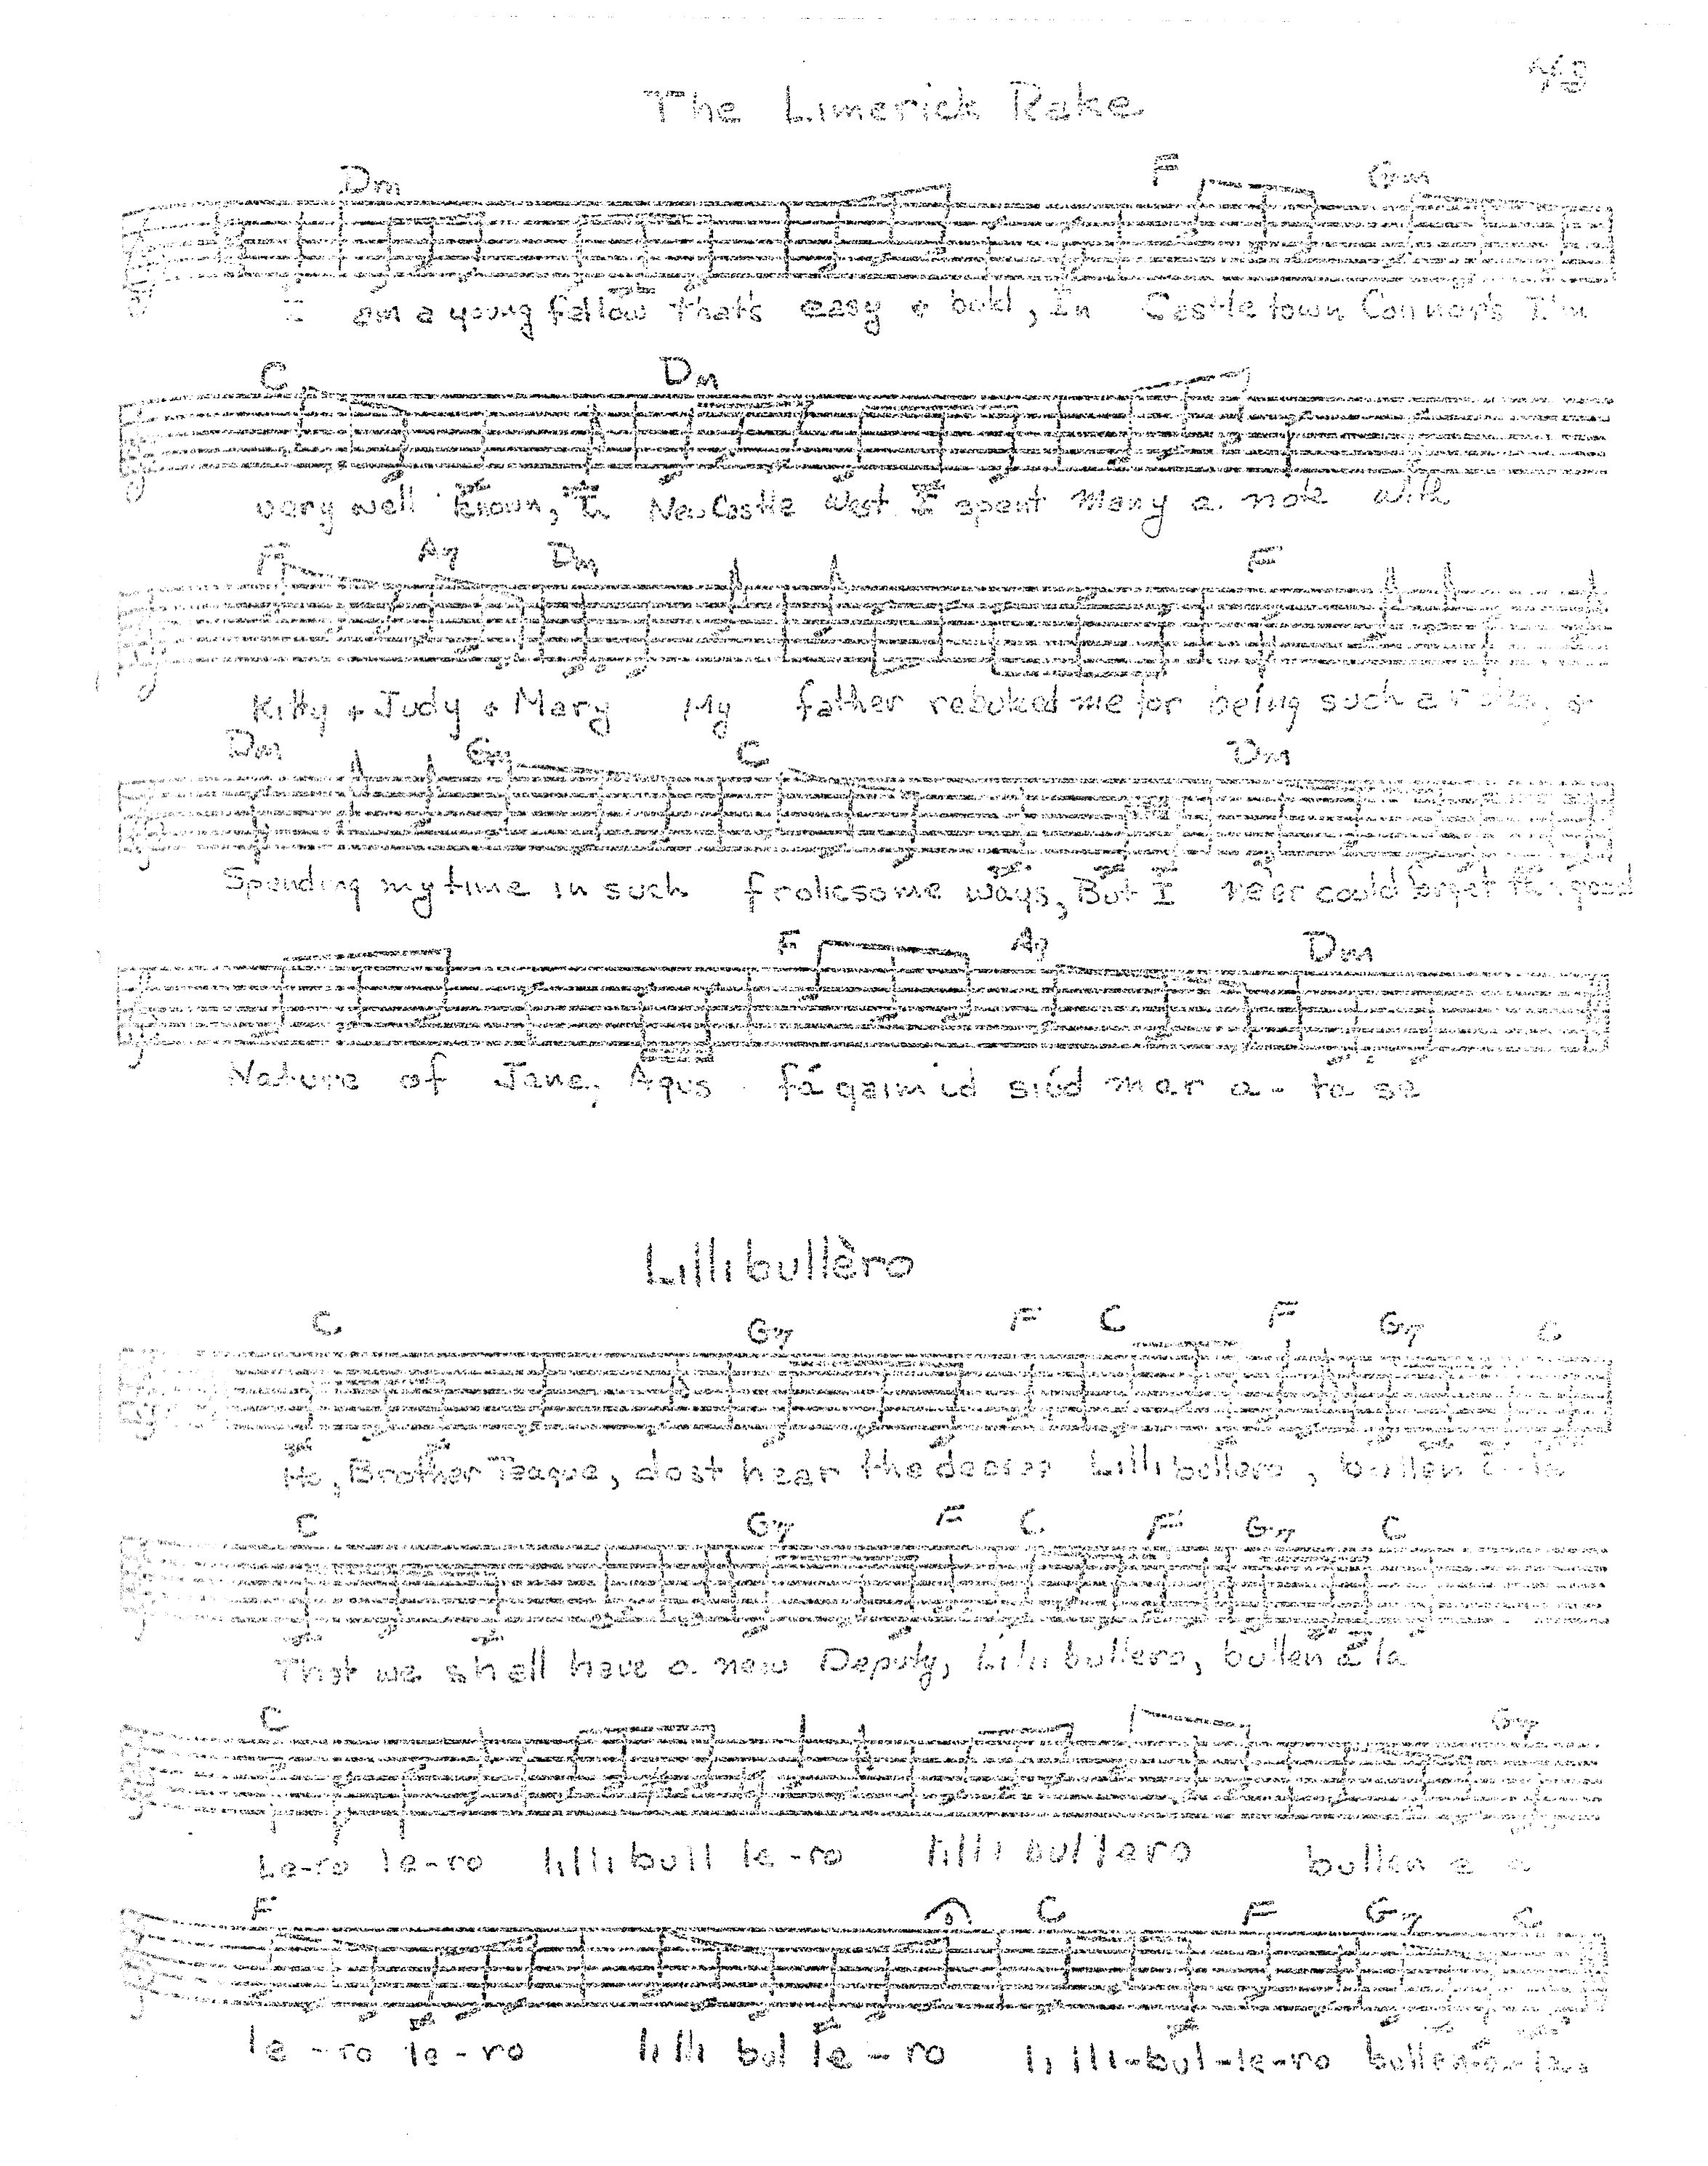 The Limerick Rake
Dm F Gm
I am a young fellow that's easy & bold, In Castletown Connors I'm
C Dm
very well known, In NewCastle West I spent Many a note with
F A7 Dm F
Kitty & Judy & Mary My father rebuked me for being such a rake, &
Dm Gm C Dm
Spending my time in such frolicsome ways, But I ne'er could forget the good
F A7 Dm
Nature of Jane, Agus fágaimíd siúd mar a-ta se
Lillibullèro
C G7 F C F G7 C
Ho, Brother Teague, dost hear the decree Lillibullero, bullen a la
C G7 F C F G7 C
That we shall have a new Deputy, Lillibullero, bullen a la
C G7
Le-ro le-ro lilli bull le-ro lilli bullero bullen a
F C F G7 C
le-ro le-ro lilli bul le-ro li lli-bul-le-ro bullen-a-la